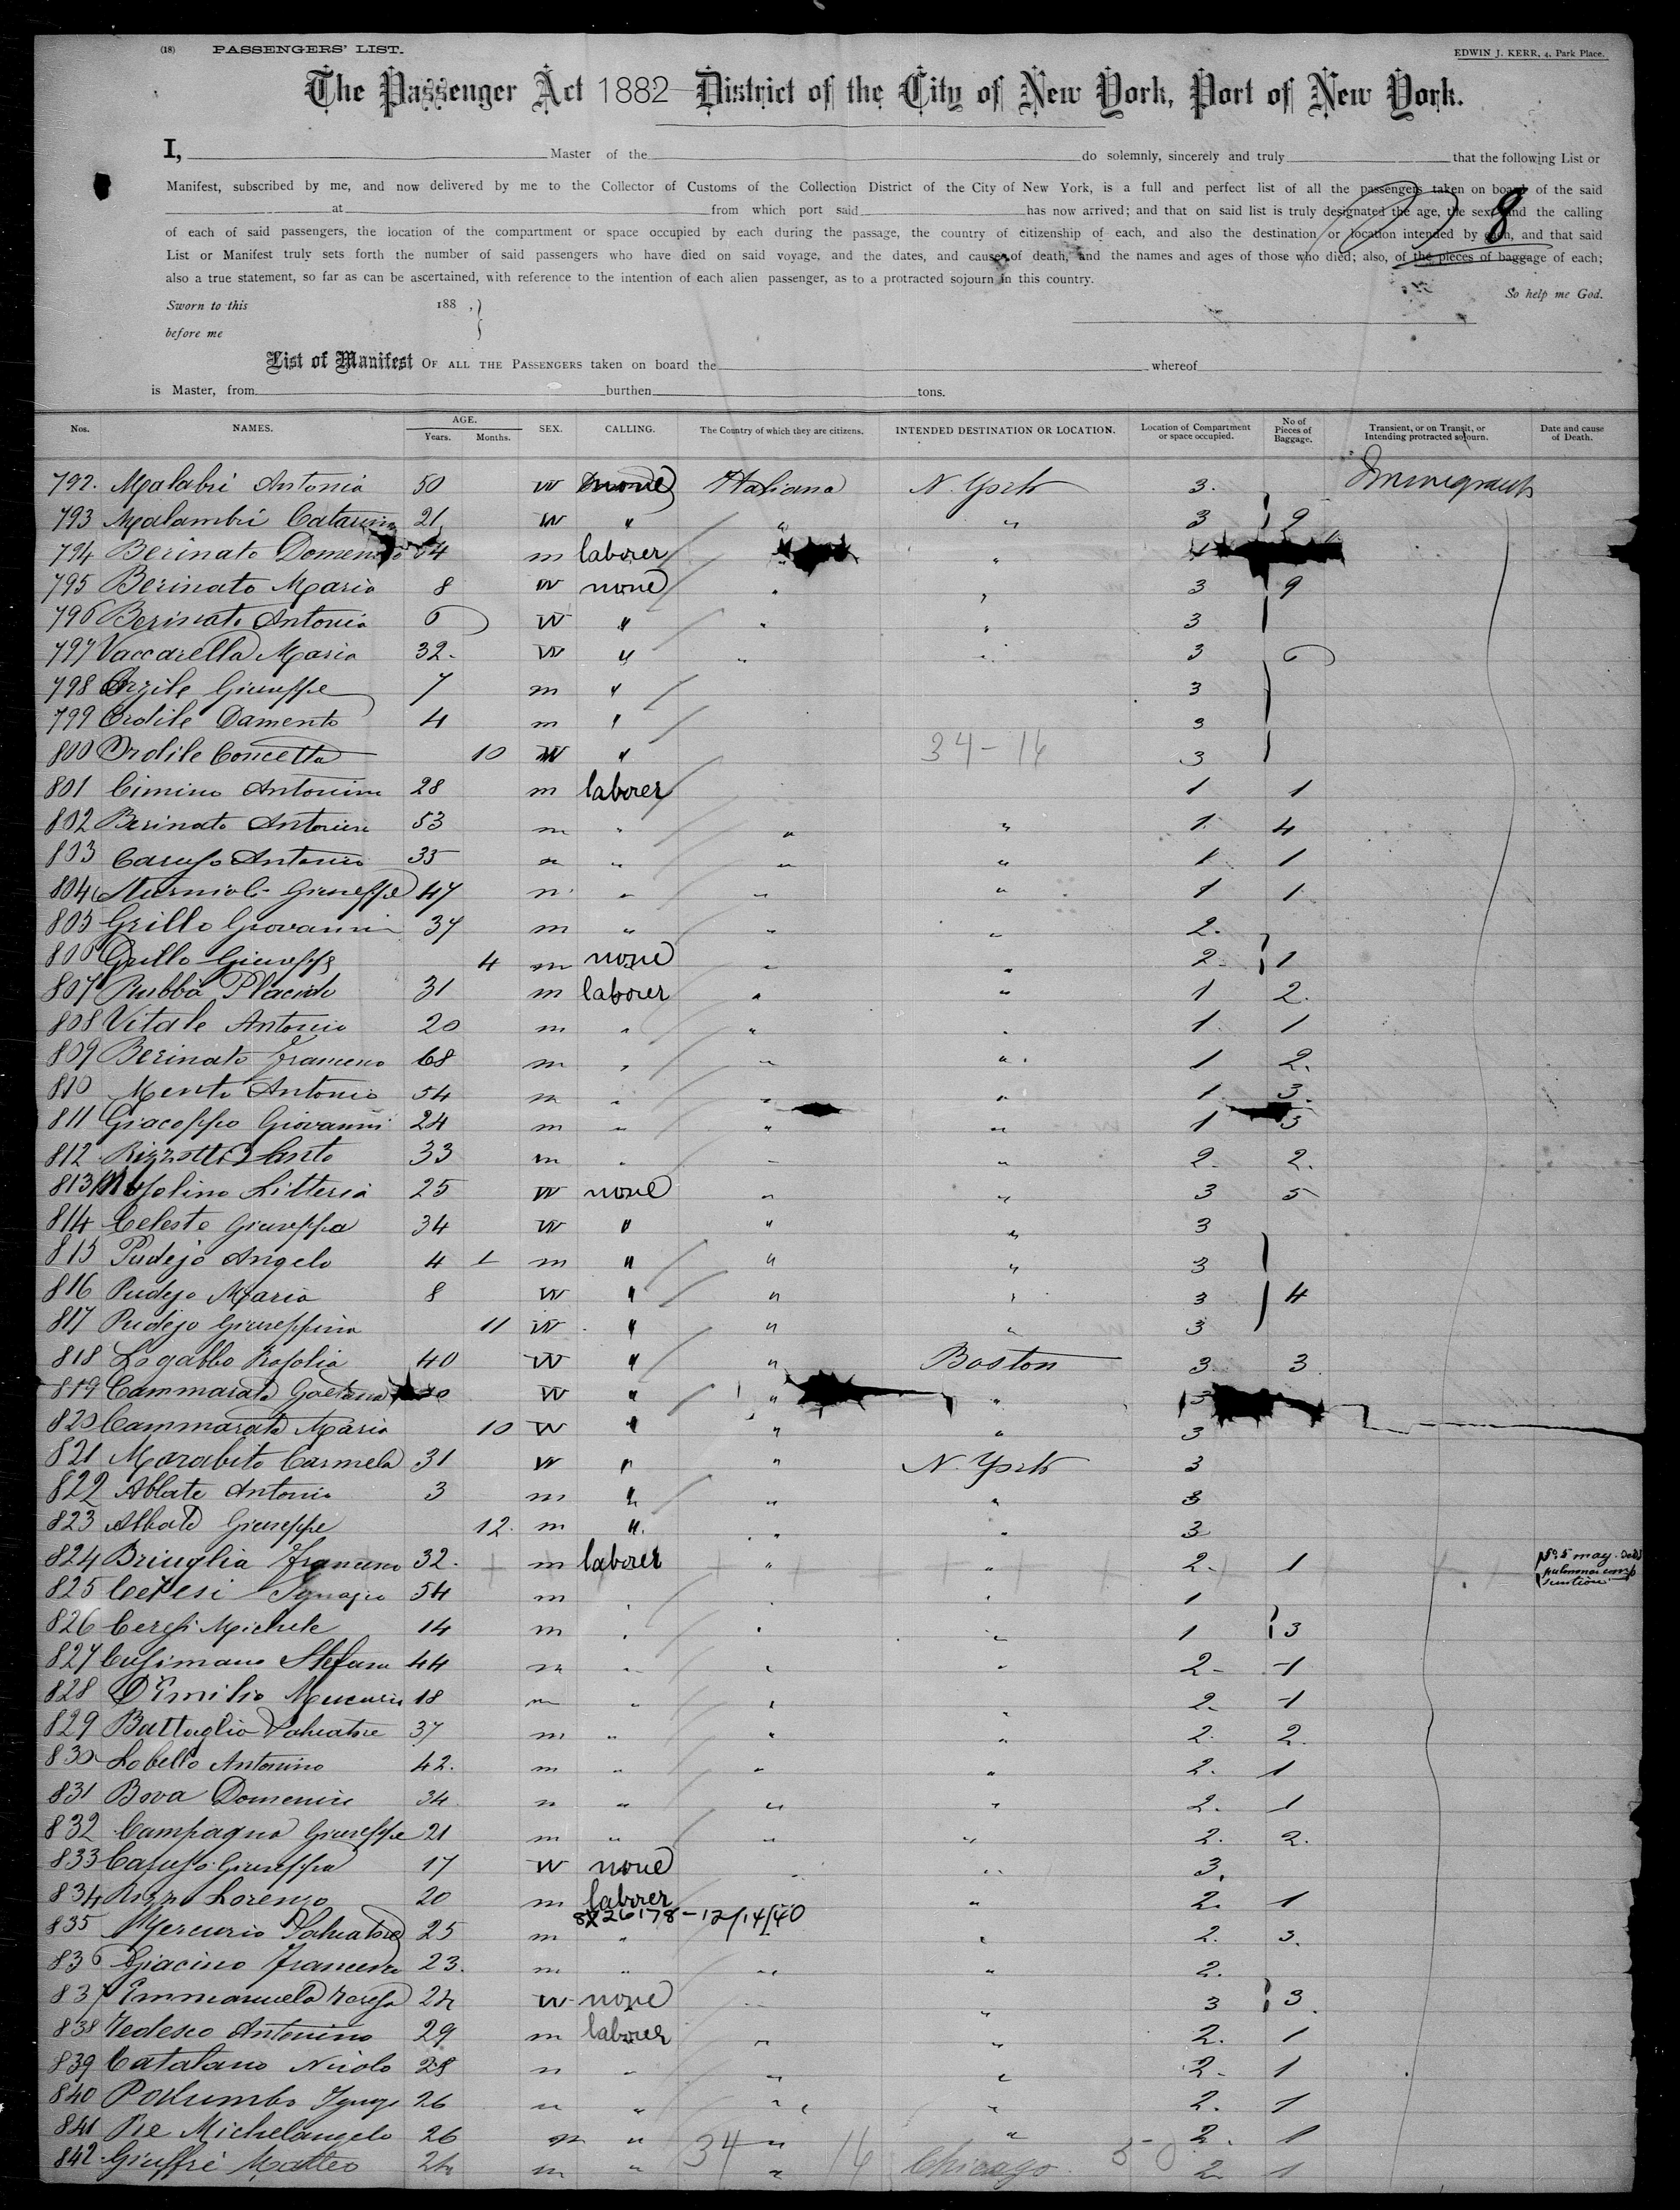 (18) PASSENGERS' LIST.
EDWIN J. KERR, 4, Park Place.
The Passenger Act 1882 District of the City of New York, Port of New York.
8
I, Master of the do solemnly, sincerely and truly that the following List or
Manifest, subscribed by me, and now delivered by me to the Collector of Customs of the Collection District of the City of New York, is a full and perfect list of all the passengers taken on board of the said
at from which port said has now arrived; and that on said list is truly designated the age, the sex and the calling
of each of said passengers, the location of the compartment or space occupied by each during the passage, the country of citizenship of each, and also the destination or location intended by each, and that said
List or Manifest truly sets forth the number of said passengers who have died on said voyage, and the dates, and causes of death, and the names and ages of those who died; also, of the pieces of baggage of each;
also a true statement, so far as can be ascertained, with reference to the intention of each alien passenger, as to a protracted sojourn in this country.
So help me God.
Sworn to this 188 ,
before me
List of Manifest OF ALL THE PASSENGERS taken on board the whereof
is Master, from burthen tons.
Nos. NAMES. AGE. Years. Months. SEX. CALLING. The Country of which they are citizens. INTENDED DESTINATION OR LOCATION. Location of Compartment or space occupied. No of Pieces of Baggage. Transient, or on Transit, or Intending protracted sojourn. Date and cause of Death.
792. Malabri Antonia 50 w none Italiana N. York 3.
793 Malambri Catarina 21 w " " " 3 9
794 Berinato Domenico m laborer " "
795 Berinato Maria 8 w none " " 3 9
796 Berinato Antonia 6 w " " " 3
797 Vaccarella Maria 32. w " " " 3 6
798 Giuseppe 7 m " 3
799 Ordile Damento 4 m " 3
800 Ordile Concetta 10 w " 34-14 3
801 Cimino Antonino 28 m laborer 1 1
802 Berinato Antonino 53 m " " " 1 4
803 Caruso Antonio 35 m " " " 1 1
804 Giuseppe 47 m " " " 1 1
805 Grillo Giovanni 37 m " " " 2.
806 Grillo Giuseppe 4 m none " " 2 1
807 Rubba Placido 31 m laborer " " 1 2.
808 Vitale Antonio 20 m " " " 1 1
809 Berinato Francesco 68 m " " " 1 2.
810 Mento Antonio 54 m " " " 1 3.
811 Giacoppo Giovanni 24 m " " " 1 3
812 Rizzotti Santo 33 m " " 2. 2.
813 Litteria 25 w none " " 3 5
814 Celesto Giuseppa 34 w " " " 3
815 Pudejo Angelo 4 m " " " 3
816 Pudejo Maria 8 w " " " 3 4
817 Pudejo Giuseppina 11 w " " " 3
818 Logabbo Rosolia 40 w " " Boston 3 3
819 Cammarata Gaetana w " " "
820 Cammarata Maria 10 w " " " 3
821 Marabito Carmela 31 w " " N. York 3
822 Abbate Antonio 3 m " " " 3
823 Abbate Giuseppe 12. m " " " 3
824 Briuglia Francesco 32. m laborer " " 2. 1
825 Ceresi Ignazio 54 m " " " 1
826 Ceresi Michele 14 m " " " 1 3
827 Cusimano Stefano 44 m " " " 2 1
828 D'Emilio 18 m " " " 2. 1
829 Battaglia Salvatore 37 m " " " 2. 2.
830 Lobello Antonino 42. m " " " 2. 1
831 Bova Domenico 34 m " " " 2. 1
832 Campagna Giuseppe 21 m " " " 2. 2.
833 Caruso Giuseppa 17 w none " " 3.
834 Rizzo Lorenzo 20 m laborer " 2. 1
8X26178-12/14/40
835 Mercurio Salvatore 25 m " " 2. 3.
836 Giacino Francesco 23. m " " " 2.
837 Emmanuela Teresa 24 w none " " 3 3.
838 Tedesco Antonino 29 m laborer " " 2. 1
839 Catalano Nicolo 28 m " " " 2. 1
840 26 m " " " 2. 1
841 Pie Michelangelo 26 m " " " 2. 1
842. Giuffre Matteo 24 m " 34 " 14 Chicago 2 1